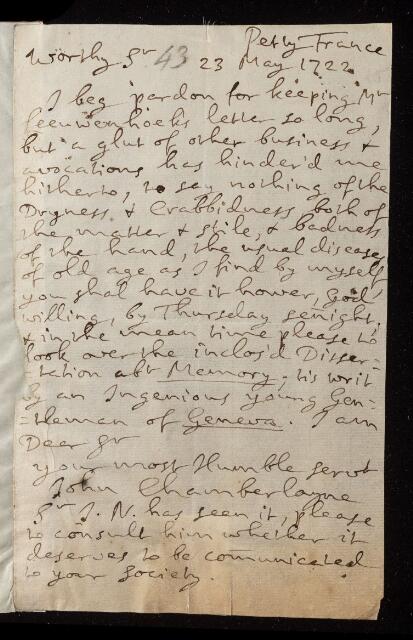 Petty France
Worthy Sr 43 23 May 1722
I beg pardon for keeping Mr
Leeuwenhoeks letter so long,
but a glut of other business &
avocations has hinder'd me
hitherto, to say nothing of the
Dryness & Crabbidness both of
the matter & stile, & badness
of the hand, the usual diseases
of old age as I find by myself,
you shal have it hower, God
willing, by Thursday senight,
& in the mean time please to
look over the inclos'd Disser-
-tation abt Memory, tis writ
by an Ingenious young Gen:
:tleman of Geneva. I am
Dear Sr
your most Humble servt
John Chamberlayne
Sr I. N. has seen it, please
to consult him whether it
deserves to be communicated
to your Society.